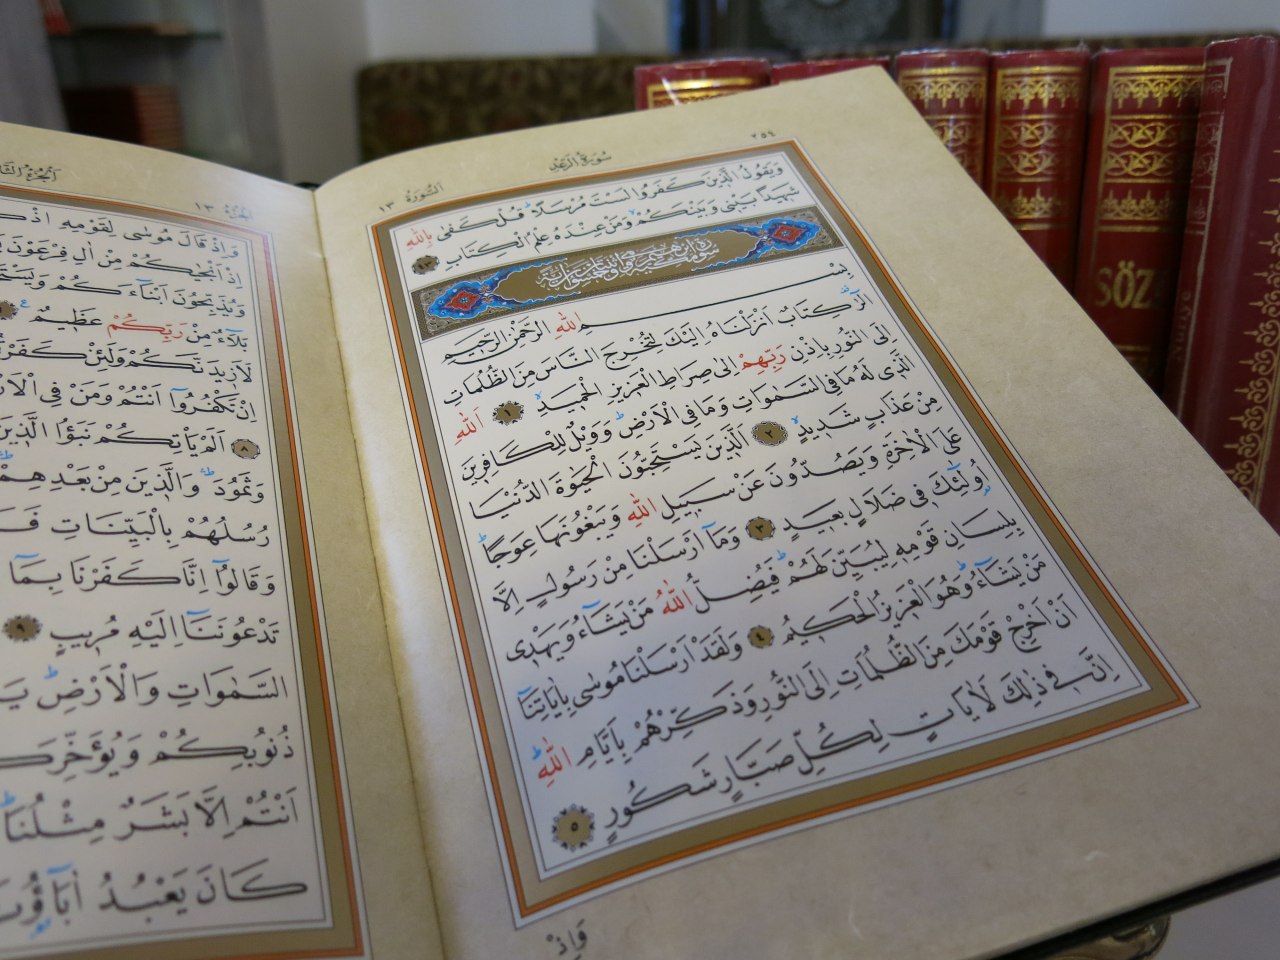 ٢٥٤
سُورَةُ الرَّعْدِ
اَلسُّورَةُ ١٣
وَيَقُولُ الَّذِينَ كَفَرُوا لَسْتَ مُرْسَلًا قُلْ كَفٰى بِاللّٰهِ
شَهِيدًا بَيْنِى وَبَيْنَكُمْ وَمَنْ عِنْدَهُ عِلْمُ الْكِتَابِ ٤٣
بِسْمِ اللّٰهِ الرَّحْمٰنِ الرَّحِيمِ
الٓرٰ كِتَابٌ اَنْزَلْنَاهُ اِلَيْكَ لِتُخْرِجَ النَّاسَ مِنَ الظُّلُمَاتِ
اِلَى النُّورِ بِاِذْنِ رَبِّهِمْ اِلٰى صِرَاطِ الْعَزِيزِ الْحَمِيدِ ١ اَللّٰهِ
الَّذِى لَهُ مَا فِى السَّمٰوَاتِ وَمَا فِى الْاَرْضِ وَوَيْلٌ لِلْكَافِرِينَ
مِنْ عَذَابٍ شَدِيدٍ ٢ اَلَّذِينَ يَسْتَحِبُّونَ الْحَيٰوةَ الدُّنْيَا
عَلَى الْاٰخِرَةِ وَيَصُدُّونَ عَنْ سَبِيلِ اللّٰهِ وَيَبْغُونَهَا عِوَجًا
اُولٰٓئِكَ فِى ضَلَالٍ بَعِيدٍ ٣ وَمَٓا اَرْسَلْنَا مِنْ رَسُولٍ اِلَّا
بِلِسَانِ قَوْمِهِ لِيُبَيِّنَ لَهُمْ فَيُضِلُّ اللّٰهُ مَنْ يَشَٓاءُ وَيَهْدِى
مَنْ يَشَٓاءُ وَهُوَ الْعَزِيزُ الْحَكِيمُ ٤ وَلَقَدْ اَرْسَلْنَا مُوسٰى بِاٰيَاتِنَٓا
اَنْ اَخْرِجْ قَوْمَكَ مِنَ الظُّلُمَاتِ اِلَى النُّورِ وَذَكِّرْهُمْ بِاَيَّامِ اللّٰهِ
اِنَّ فِى ذٰلِكَ لَاٰيَاتٍ لِكُلِّ صَبَّارٍ شَكُورٍ ٥
وَاِذْ
اَلْجُزْءُ ١٣
وَاِذْ قَالَ مُوسٰى لِقَوْمِهِ
اِذْ اَنْجٰيكُمْ مِنْ اٰلِ فِرْعَوْنَ
وَيُذَبِّحُونَ اَبْنَٓاءَكُمْ
بَلَٓاءٌ مِنْ رَبِّكُمْ عَظِيمٌ
لَاَزِيدَنَّكُمْ وَلَئِنْ
اِنْ تَكْفُرُٓوا اَنْتُمْ وَمَنْ فِى
٨ اَلَمْ يَأْتِكُمْ نَبَؤُا الَّذِينَ
وَثَمُودَ وَالَّذِينَ مِنْ بَعْدِهِمْ
رُسُلُهُمْ بِالْبَيِّنَاتِ
وَقَالُٓوا اِنَّا كَفَرْنَا بِمَٓا
تَدْعُونَنَٓا اِلَيْهِ مُرِيبٍ ٩
السَّمٰوَاتِ وَالْاَرْضِ
ذُنُوبِكُمْ وَيُؤَخِّرَكُمْ
اَنْتُمْ اِلَّا بَشَرٌ مِثْلُنَا
كَانَ يَعْبُدُ اٰبَٓاؤُنَا
SÖZ